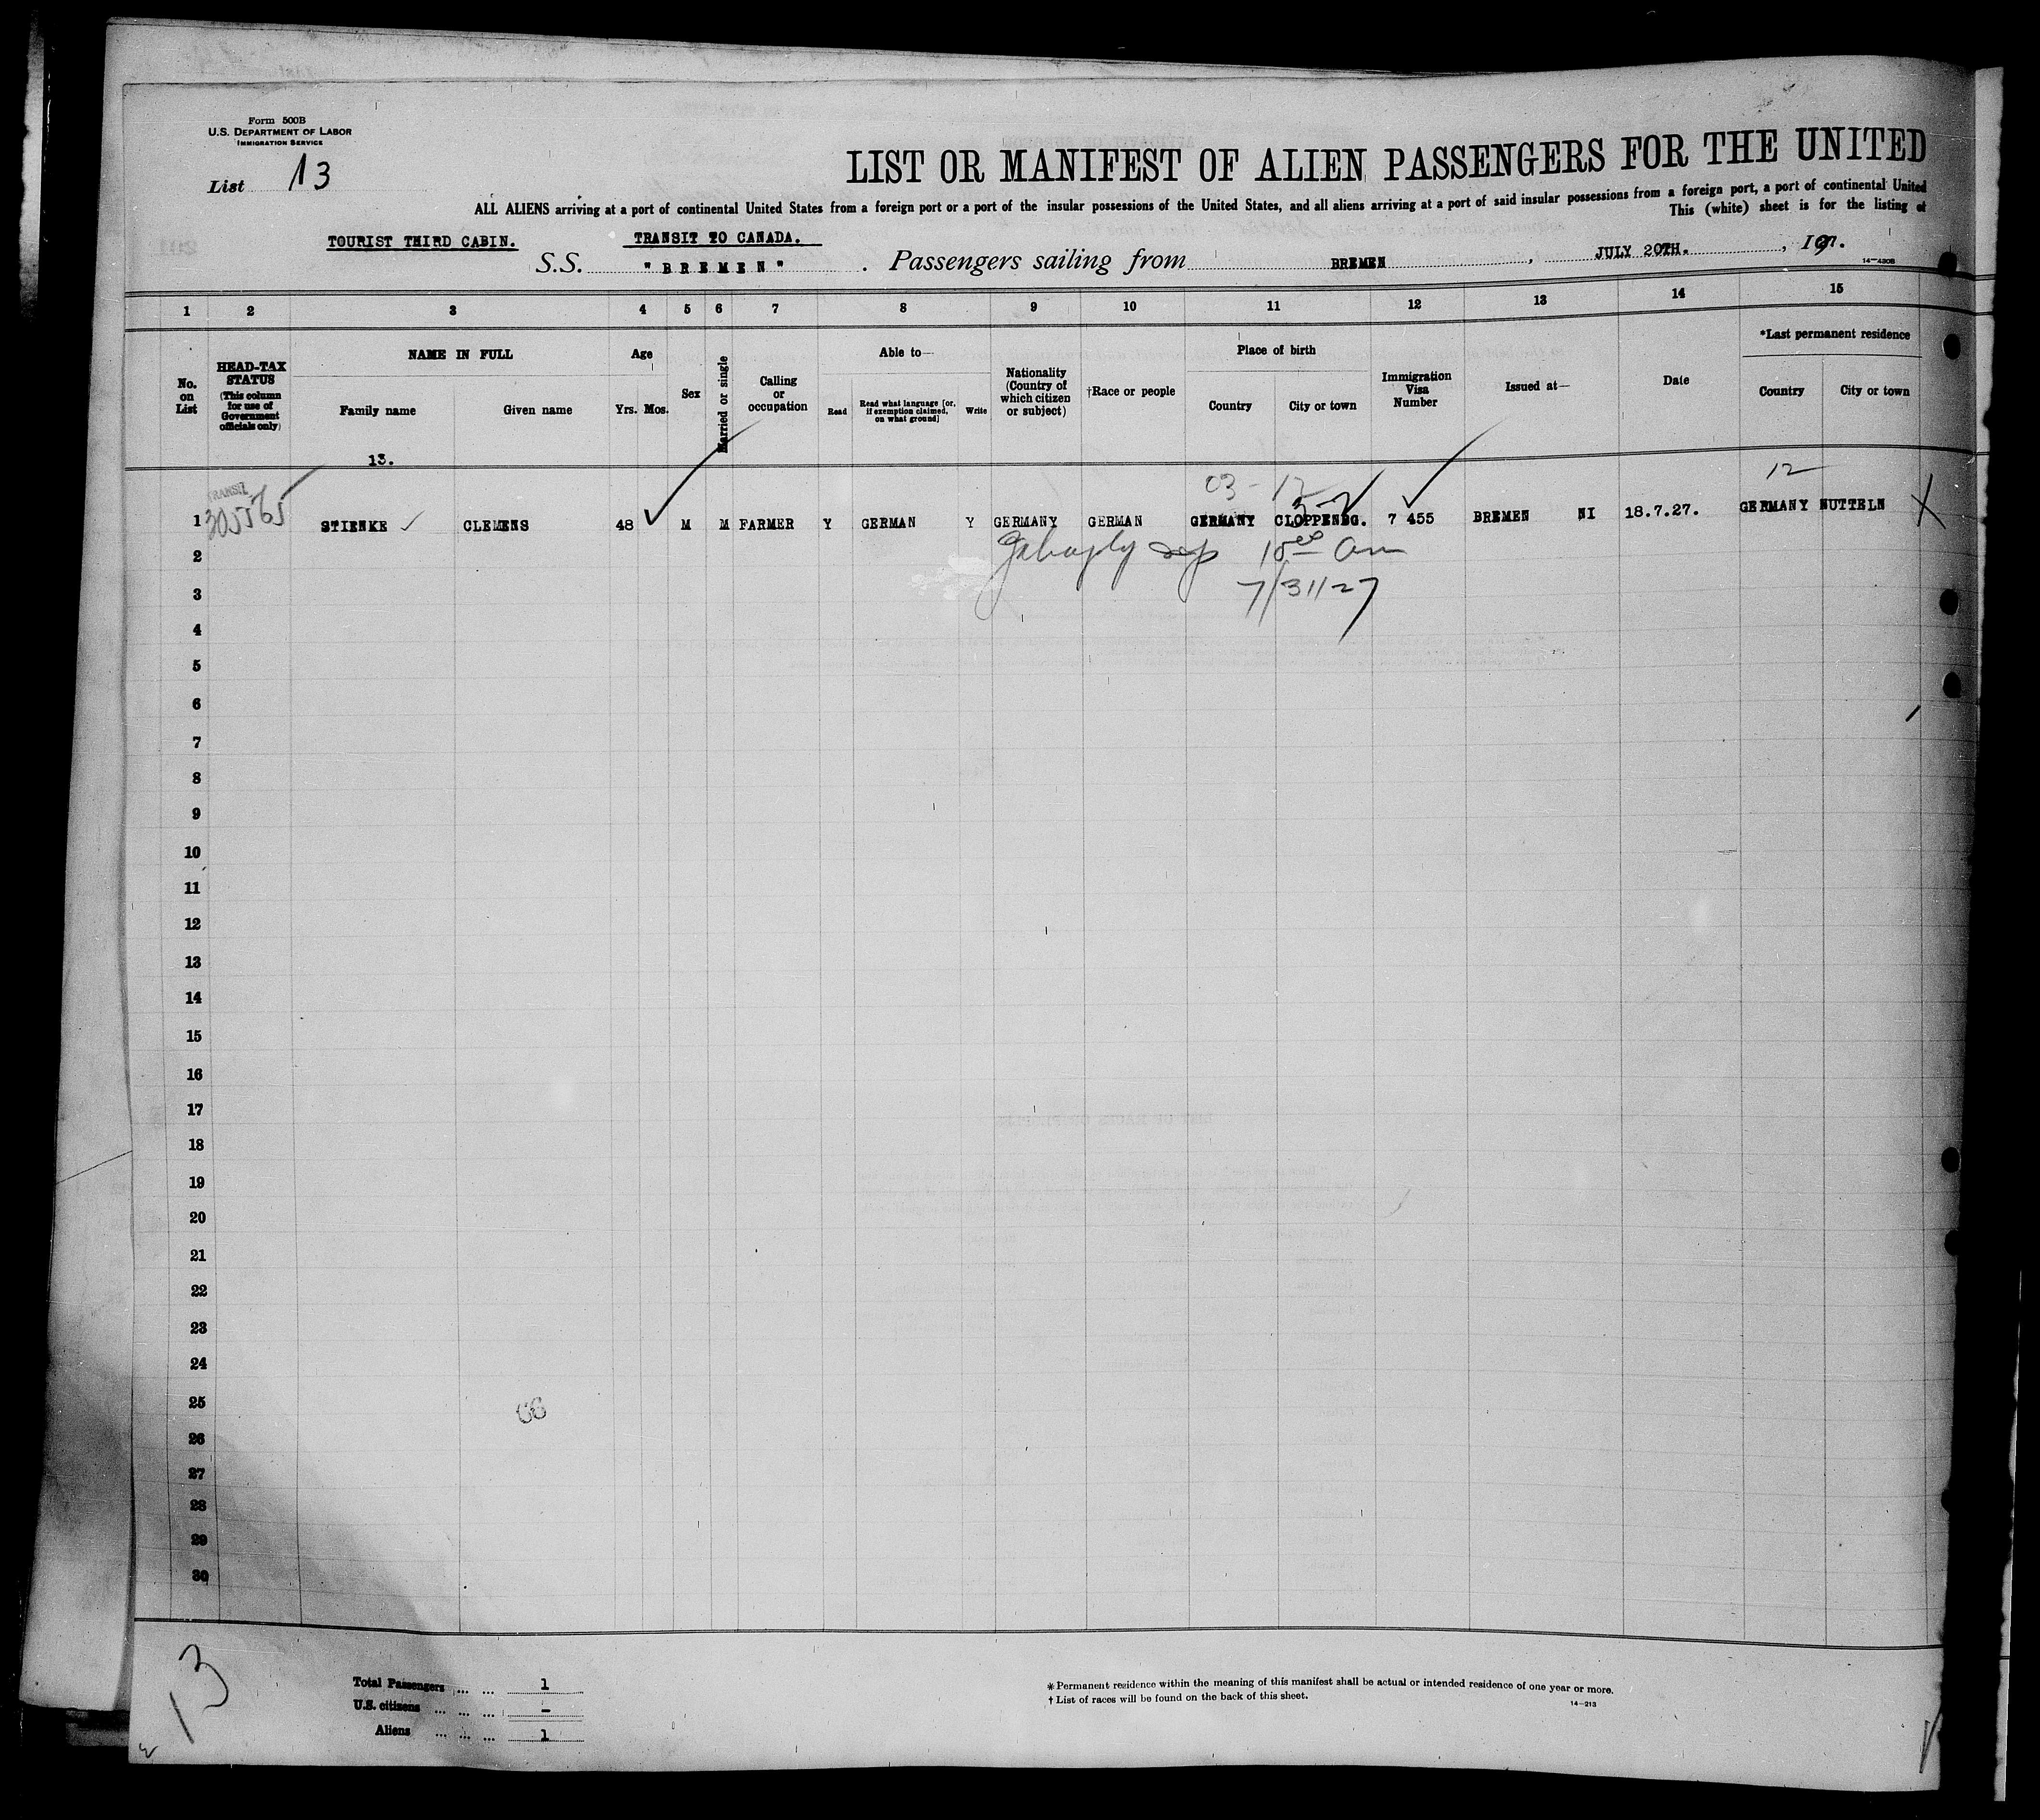 Form 500B
U.S. DEPARTMENT OF LABOR
IMMIGRATION SERVICE
List 13
LIST OR MANIFEST OF ALIEN PASSENGERS FOR THE UNITED
ALL ALIENS arriving at a port of continental United States from a foreign port or a port of the insular possessions of the United States, and all aliens arriving at a port of said insular possessions from a foreign port, a port of continental United
This (white) sheet is for the listing of
TOURIST THIRD CABIN. TRANSIT TO CANADA.
S.S. "BREMEN". Passengers sailing from BREMEN, JULY 20TH., 197.
14-430B
1 2 3 4 5 6 7 8 9 10 11 12 13 14 15
No. on List
HEAD-TAX STATUS (This column for use of Government officials only)
NAME IN FULL
Family name Given name
Age
Yrs. Mos.
Sex
Married or single
Calling or occupation
Able to—
Read
Read what language [or, if exemption claimed, on what ground]
Write
Nationality (Country of which citizen or subject)
†Race or people
Place of birth
Country City or town
Immigration Visa Number
Issued at—
Date
*Last permanent residence
Country City or town
13.
03-12 12
TRANSIT
305565
1 STIENKE CLEMENS 48 M M FARMER Y GERMAN Y GERMANY GERMAN GERMANY CLOPPENBG. 7 455 BREMEN NI 18.7.27. GERMANY NUTTELN X
2 10 00 am
3 7/31/27
4
5
6
7
8
9
10
11
12
13
14
15
16
17
18
19
20
21
22
23
24
25
26
27
28
29
30
13
Total Passengers ... ... 1
U.S. citizens ... ... ... -
Aliens ... ... ... 1
*Permanent residence within the meaning of this manifest shall be actual or intended residence of one year or more.
†List of races will be found on the back of this sheet.
14-213